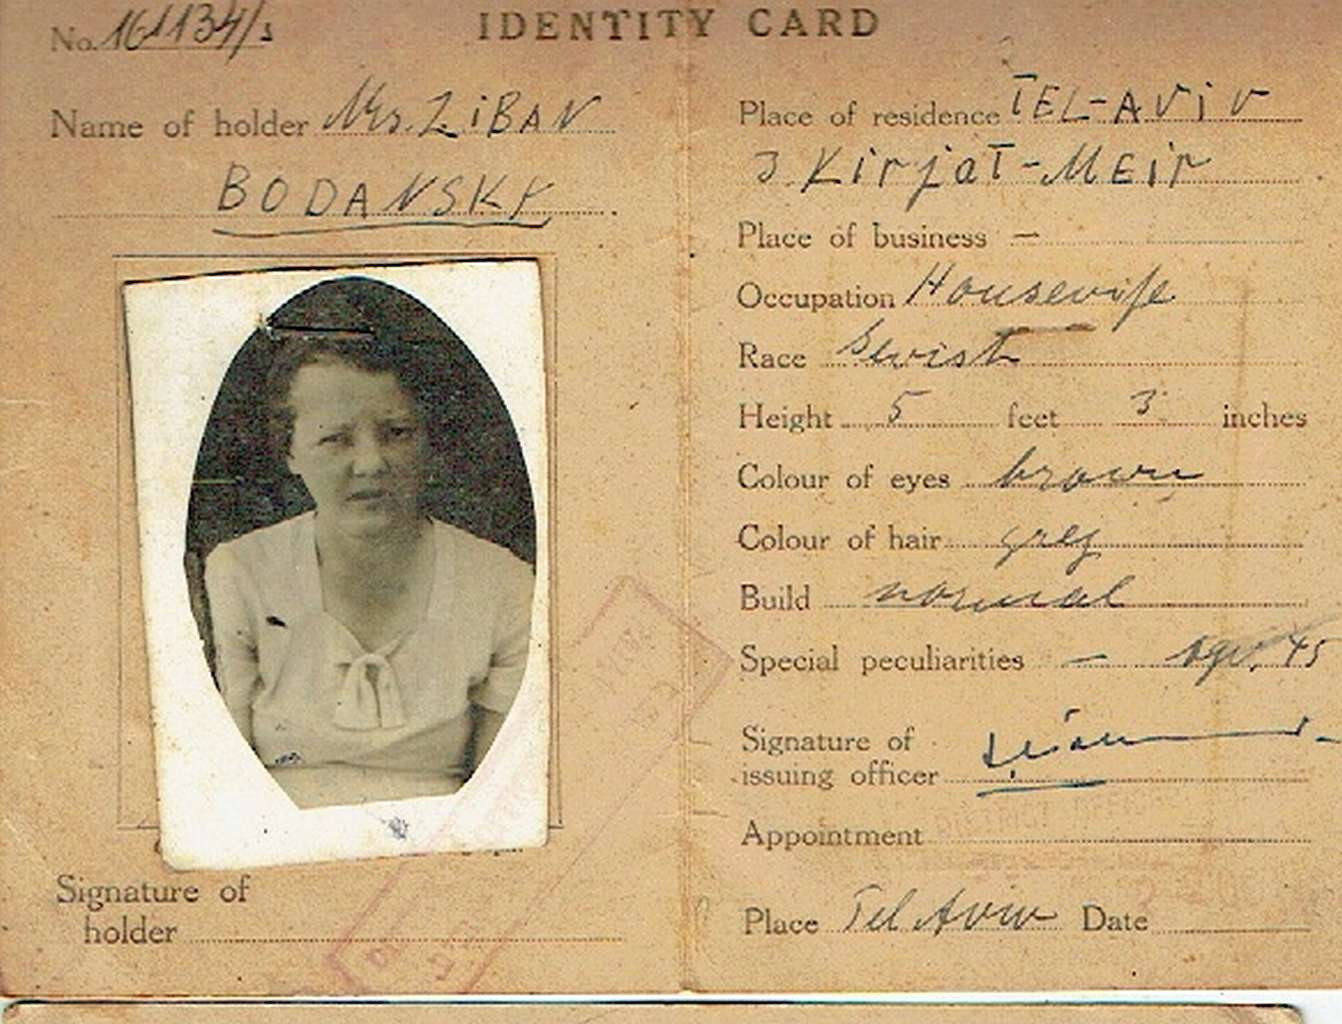 IDENTITY CARD
No. 16134/s
Name of holder Mrs. ZiBAN
BODANSKY
Signature of
holder
Place of residence TEL-AViV
3 KirjaT-MEir
Place of business —
Occupation Housewife
Race Jewish
Height 5 feet 3 inches
Colour of eyes brown
Colour of hair grey
Build normal
Special peculiarities — age. 45
Signature of
issuing officer
Appointment
DISTRICT
Place Tel Aviv Date